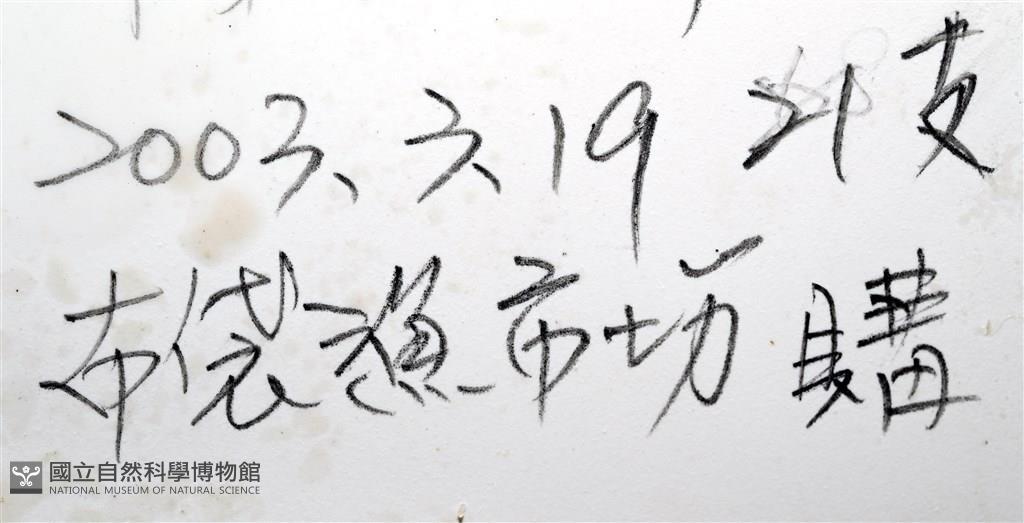 2003、3、19 21支
布袋漁市场購
國立自然科學博物館
NATIONAL MUSEUM OF NATURAL SCIENCE